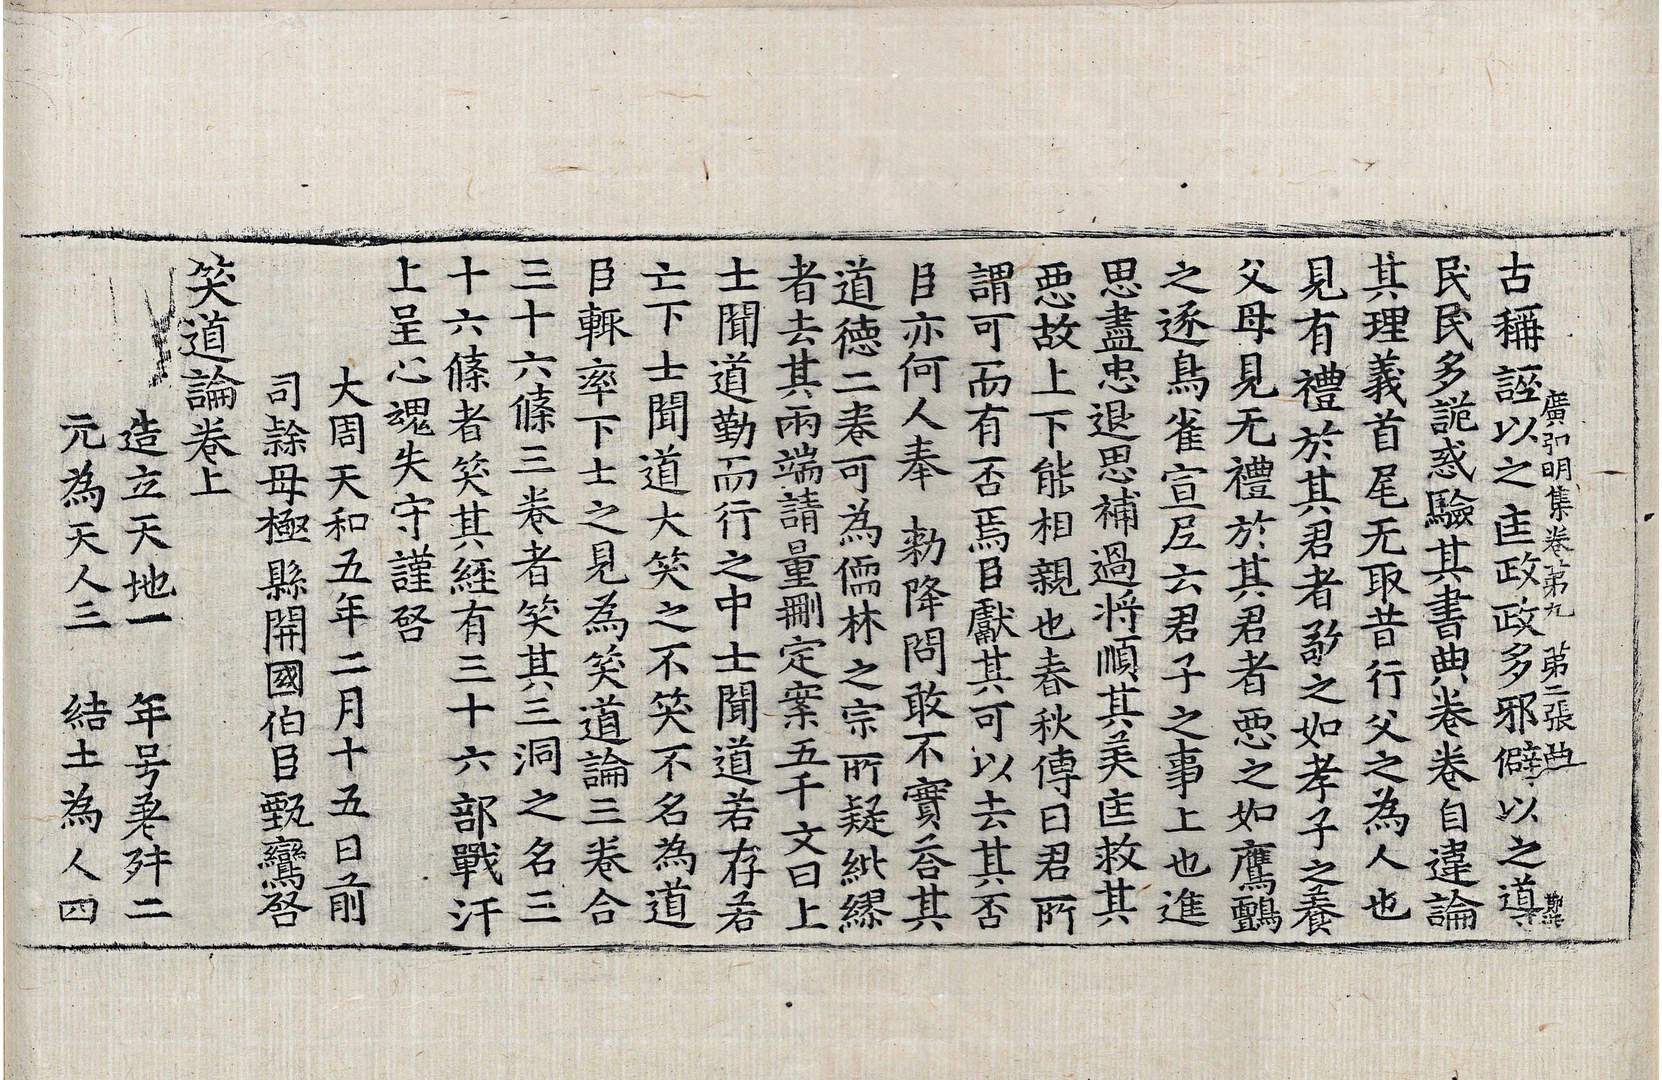 廣弘明集卷第九　第二張　典
古稱誣以之匡政政多邪僻以之導
民民多詭惑驗其書典卷卷自違論
其理義首尾无取昔行父之為人也
見有禮於其君者敬之如孝子之養
父母見无禮於其君者惡之如鷹鸇
之逐鳥雀宣尼云君子之事上也進
思盡忠退思補過將順其美匡救其
惡故上下能相親也春秋傳曰君所
謂可而有否焉臣獻其可以去其否
臣亦何人奉　勑降問敢不實荅其
道德二卷可為儒林之宗所疑紕繆
者去其兩端請量刪定案五千文曰上
士聞道勤而行之中士聞道若存若
亡下士聞道大笑之不笑不名為道
臣輒率下士之見為笑道論三卷合
三十六條三卷者笑其三洞之名三
十六條者笑其經有三十六部戰汗
上呈心魂失守謹啓
大周天和五年二月十五日前
司隸毋極縣開國伯臣甄鸞啓
笑道論卷上
造立天地一　年号差舛二
元為天人三　結土為人四